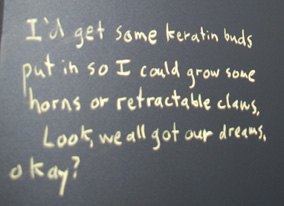 I'd get some keratin buds
put in so I could grow some
horns or retractable claws.
Look, we all got our dreams,
okay?